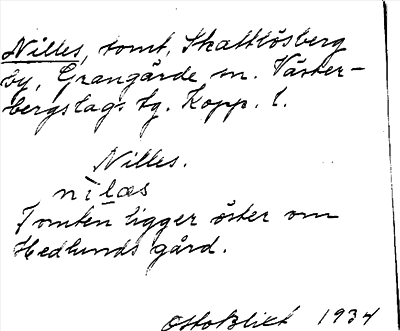 Nilles, tomt, Skattlösberg
by, Grangärde sn. Väster-
bergslags tg. Kopp. l.
Nilles.
nìlas
Tomten ligger öster om
Hedlunds gård.
Otto Blixt 1934